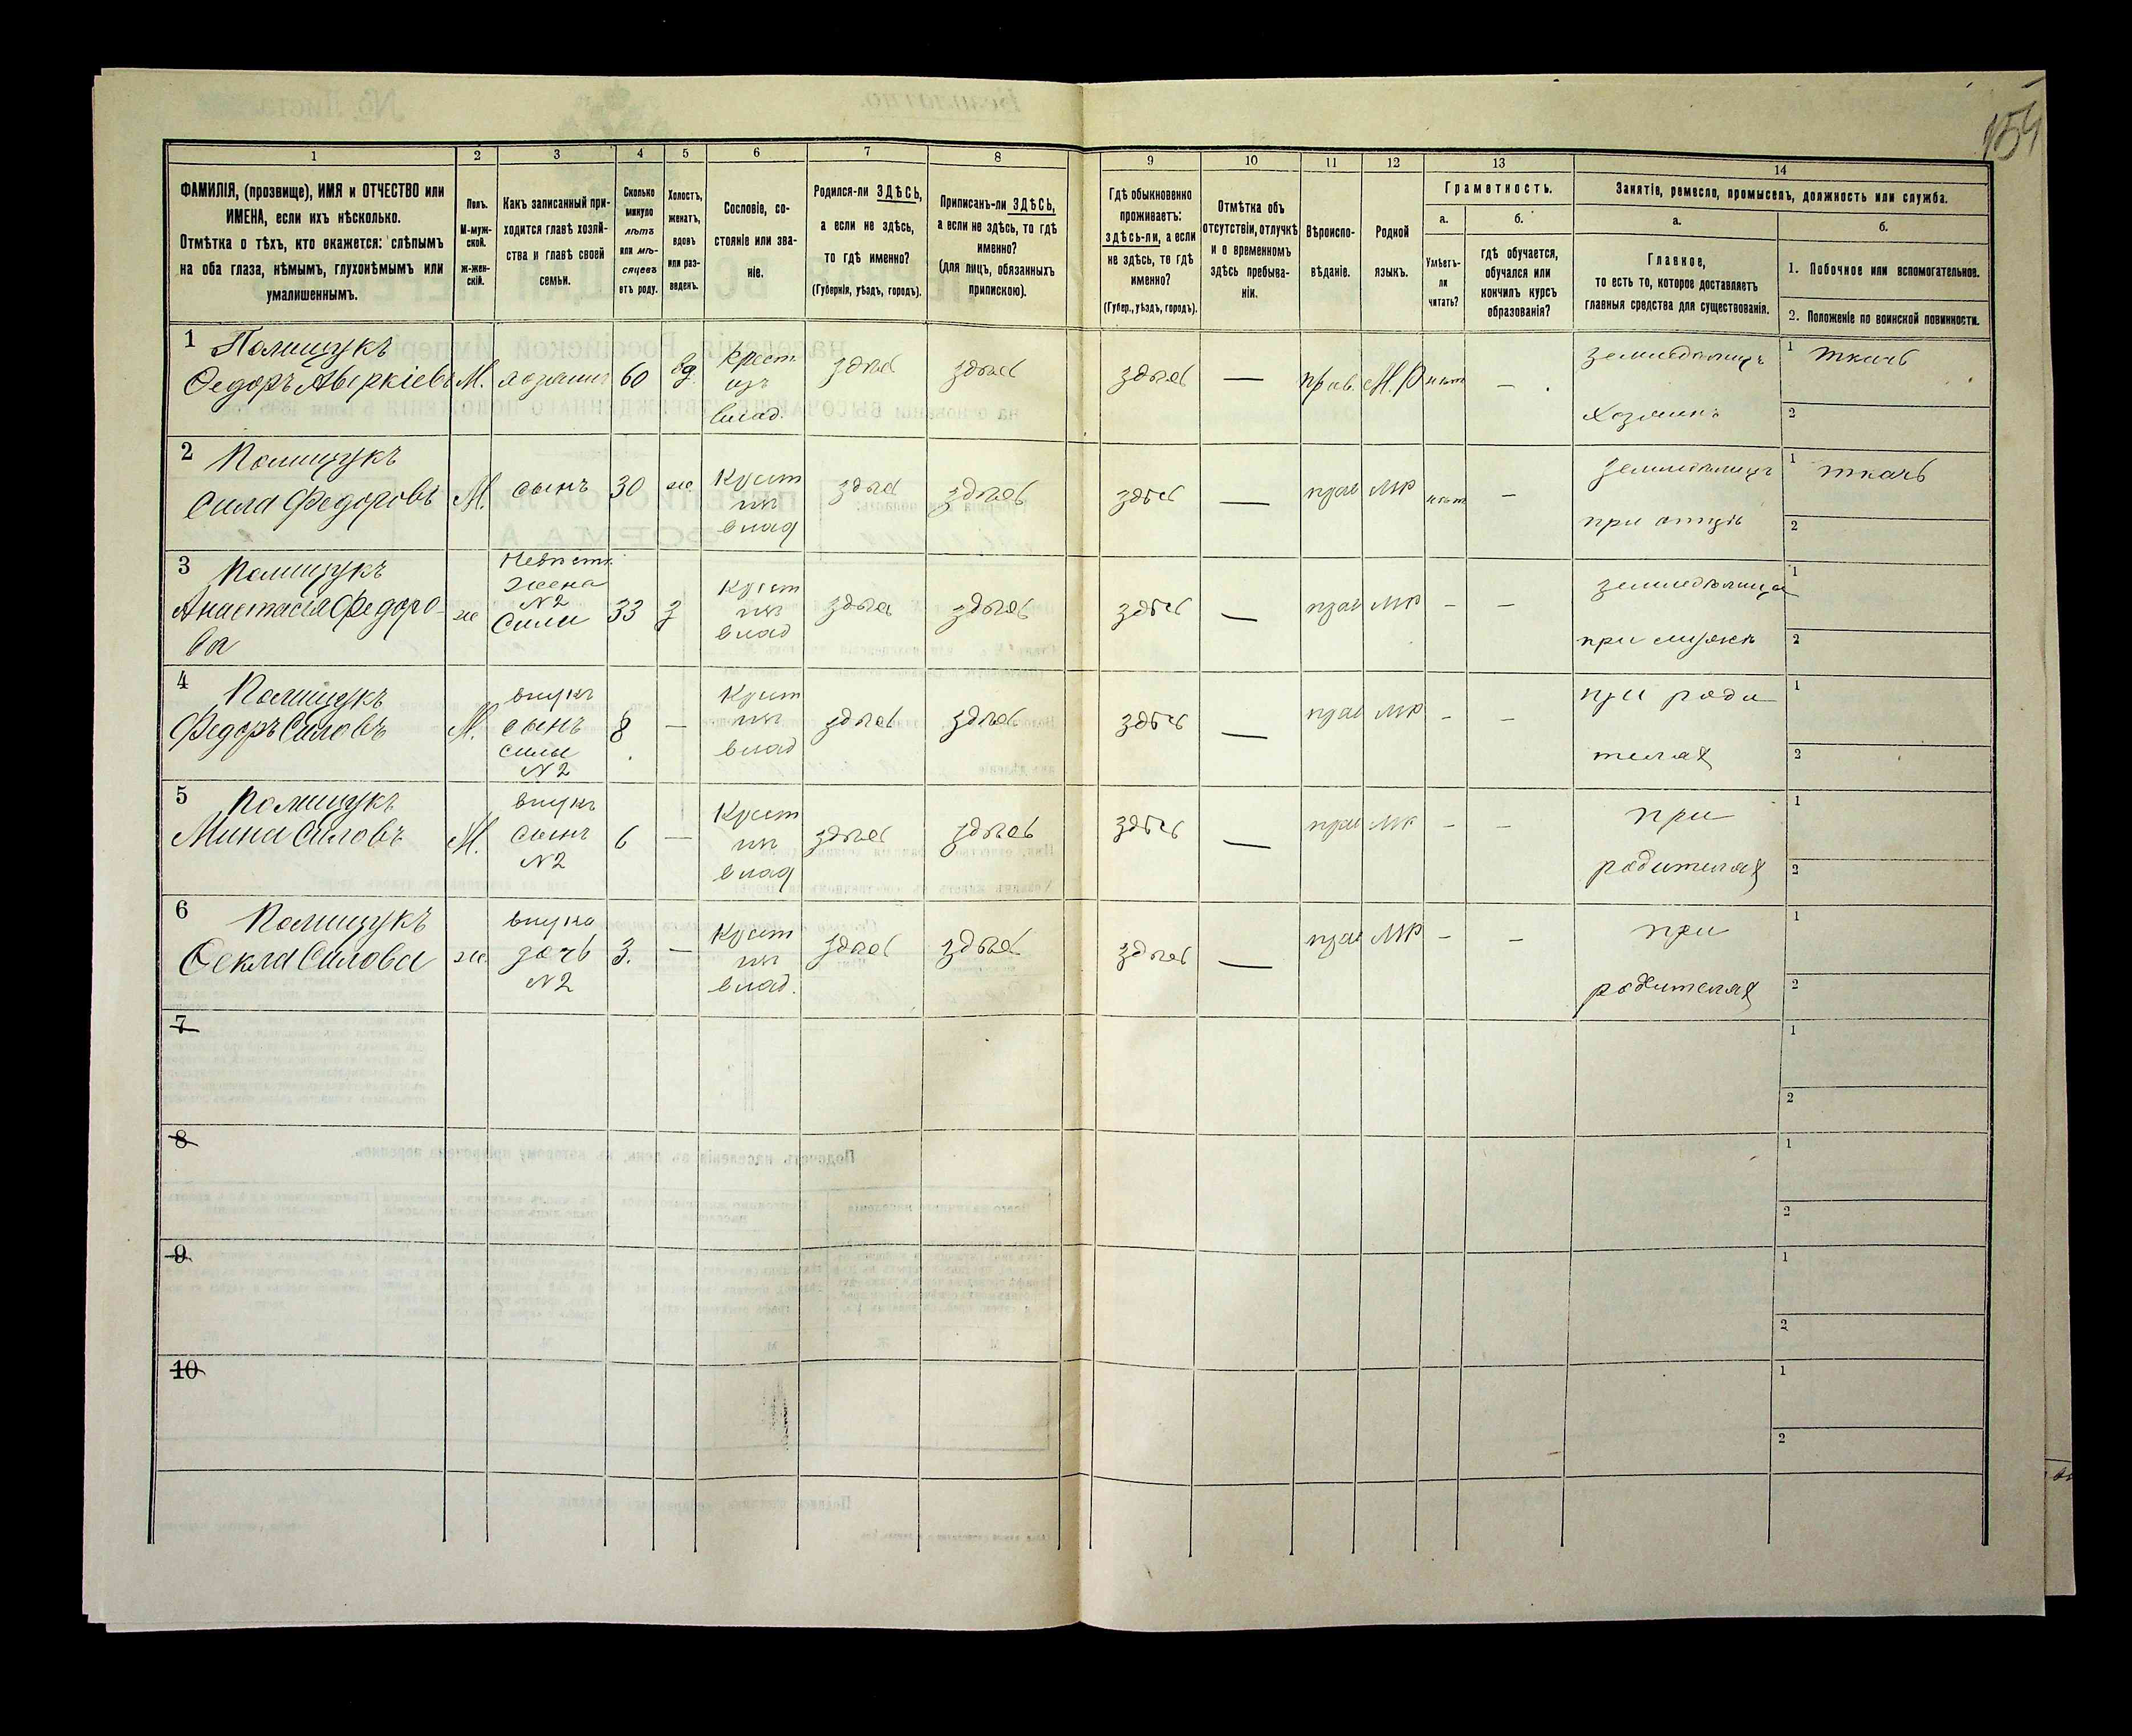 154
1 2 3 4 5 6 7 8 9 10 11 12 13 14
ФАМИЛІЯ, (прозвище), ИМЯ и ОТЧЕСТВО или
ИМЕНА, если ихъ нѣсколько.
Отмѣтка о тѣхъ, кто окажется: слѣпымъ
на оба глаза, нѣмымъ, глухонѣмымъ или
умалишеннымъ.
Полъ.
М-муж-
ской.
ж-жен-
скій.
Какъ записанный при-
ходится главѣ хозяй-
ства и главѣ своей
семьи.
Сколько
минуло
лѣтъ
или мѣ-
сяцевъ
отъ роду.
Холостъ,
женатъ,
вдовъ
или раз-
веденъ.
Сословіе, со-
стояніе или зва-
ніе.
Родился-ли ЗДѢСЬ,
а если не здѣсь,
то гдѣ именно?
(Губернія, уѣздъ, городъ).
Приписанъ-ли ЗДѢСЬ,
а если не здѣсь, то гдѣ
именно?
(для лицъ, обязанныхъ
припискою).
Гдѣ обыкновенно
проживаетъ:
здѣсь-ли, а если
не здѣсь, то гдѣ
именно?
(Губер., уѣздъ, городъ).
Отмѣтка объ
отсутствіи, отлучкѣ
и о временномъ
здѣсь пребыва-
ніи.
Вѣроиспо-
вѣданіе.
Родной
языкъ.
Грамотность.
а.
Умѣетъ-
ли
читать?
б.
гдѣ обучается,
обучался или
кончилъ курсъ
образованія?
Занятіе, ремесло, промыселъ, должность или служба.
а.
Главное,
то есть то, которое доставляетъ
главныя средства для существованія.
б.
1. Побочное или вспомогательное.
2. Положеніе по воинской повинности.
1 Полищукъ
Ѳедоръ Аверкіевъ
М.
хозяинъ
60
вд.
Крест
изъ
влад.
здѣсь
здѣсь
здѣсь
—
прав.
М.Р
нѣт
—
земледѣлецъ
Хозяинъ
1 ткачъ
2
2 Полищукъ
Сила Федоровъ
М.
сынъ
30
ж
Крест
изъ
влад
здѣсь
здѣсь
здѣсь
—
прав
МР
нѣт
—
земледѣлецъ
при отцѣ
1 ткачъ
2
3 Полищукъ
Анастасія Федоро-
ва
ж
Невѣст.
жена
N2
Силы
33
з
Крест
изъ
влад
здѣсь
здѣсь
здѣсь
—
прав
МР
—
—
земледѣлица
при мужѣ
1
2
4 Полищукъ
Федоръ Силовъ
М.
внукъ
сынъ
силы
N2
8
—
Крест
изъ
влад
здѣсь
здѣсь
здѣсь
—
прав
МР
—
—
при роди
телях
1
2
5 Полищукъ
Мина Силовъ
М.
внукъ
сынъ
N2
6
—
Крест
изъ
влад
здѣсь
здѣсь
здѣсь
—
прав
МР
—
—
при
родителях
1
2
6 Полищукъ
Ѳекла Силова
ж
внука
дочь
N2
3.
—
Крест
изъ
влад.
здѣсь
здѣсь
здѣсь
—
прав
МР
—
—
при
родителях
1
2
7
1
2
8
1
2
9
1
2
10
1
2